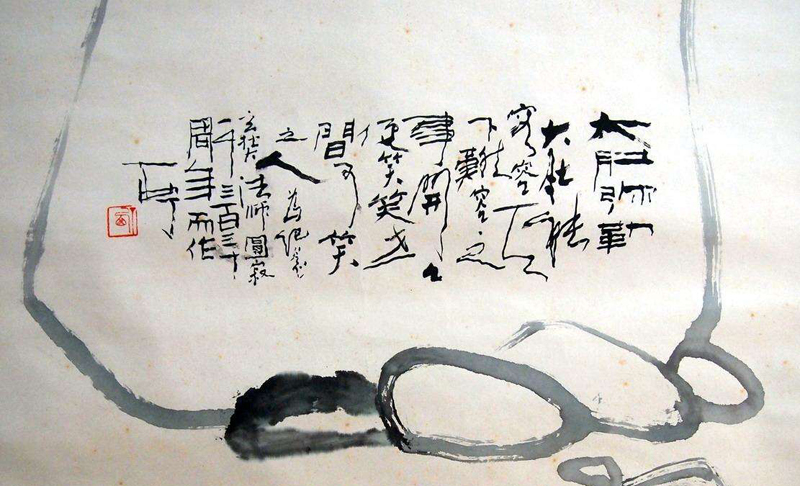 大肚弥勒
大肚能
容容天
下難容之
事開口
便笑笑世
間可笑
之人為紀念
玄奘法師圓寂
一千三百三十
周年而作